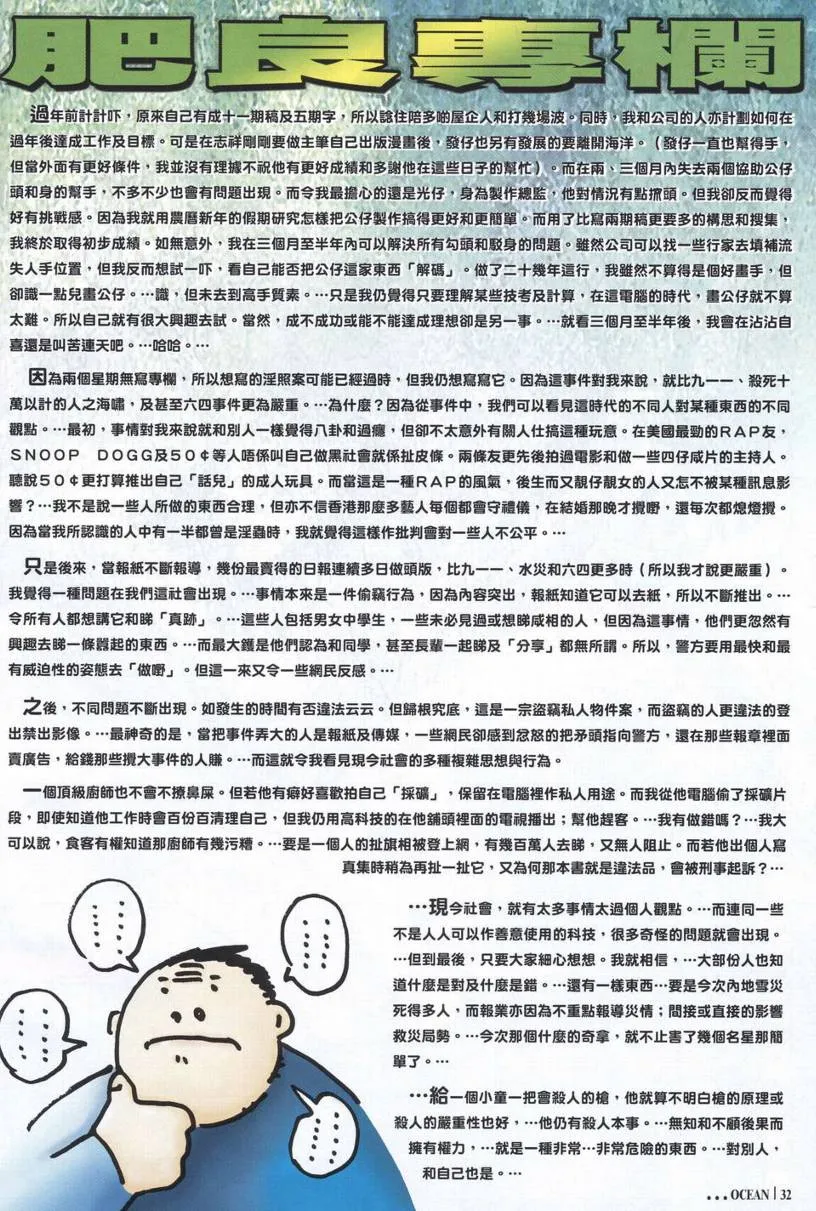 肥良專欄
過年前計計吓，原來自己有成十一期稿及五期字，所以諗住陪多啲屋企人和打幾場波。同時，我和公司的人亦計劃如何在
過年後達成工作及目標。可是在志祥剛剛要做主筆自己出版漫畫後，發仔也另有發展的要離開海洋。（發仔一直也幫得手，
但當外面有更好條件，我並沒有理據不祝他有更好成績和多謝他在這些日子的幫忙）。而在兩、三個月內失去兩個協助公仔
頭和身的幫手，不多不少也會有問題出現。而令我最擔心的還是光仔，身為製作總監，他對情況有點㩒頭。但我卻反而覺得
好有挑戰感。因為我就用農曆新年的假期研究怎樣把公仔製作搞得更好和更簡單。而用了比寫兩期稿更要多的構思和搜集，
我終於取得初步成績。如無意外，我在三個月至半年內可以解決所有勾頭和駁身的問題。雖然公司可以找一些行家去填補流
失人手位置，但我反而想試一吓，看自己能否把公仔這家東西「解碼」。做了二十幾年這行，我雖然不算得是個好畫手，但
卻識一點兒畫公仔。…識，但未去到高手質素。…只是我仍覺得只要理解某些技考及計算，在這電腦的時代，畫公仔就不算
太難。所以自己就有很大興趣去試。當然，成不成功或能不能達成理想卻是另一事。…就看三個月至半年後，我會在沾沾自
喜還是叫苦連天吧。…哈哈。…
因為兩個星期無寫專欄，所以想寫的淫照案可能已經過時，但我仍想寫寫它。因為這事件對我來說，就比九一一、殺死十
萬以計的人之海嘯，及甚至六四事件更為嚴重。…為什麼？因為從事件中，我們可以看見這時代的不同人對某種東西的不同
觀點。…最初，事情對我來說就和別人一樣覺得八卦和過癮，但卻不太意外有關人仕搞這種玩意。在美國最勁的ＲＡＰ友，
ＳＮＯＯＰ　ＤＯＧＧ及５０￠等人唔係叫自己做黑社會就係扯皮條。兩條友更先後拍過電影和做一些四仔咸片的主持人。
聽說５０￠更打算推出自己「話兒」的成人玩具。而當這是一種ＲＡＰ的風氣，後生而又靚仔靚女的人又怎不被某種訊息影
響？…我不是說一些人所做的東西合理，但亦不信香港那麼多藝人每個都會守禮儀，在結婚那晚才攪嘢，還每次都熄燈攪。
因為當我所認識的人中有一半都曾是淫蟲時，我就覺得這樣作批判會對一些人不公平。…
只是後來，當報紙不斷報導，幾份最賣得的日報連續多日做頭版，比九一一、水災和六四更多時（所以我才說更嚴重）。
我覺得一種問題在我們這社會出現。…事情本來是一件偷竊行為，因為內容突出，報紙知道它可以去紙，所以不斷推出。…
令所有人都想講它和睇「真跡」。…這些人包括男女中學生，一些未必見過或想睇咸相的人，但因為這事情，他們更忽然有
興趣去睇一條囂起的東西。…而最大鑊是他們認為和同學，甚至長輩一起睇及「分享」都無所謂。所以，警方要用最快和最
有威迫性的姿態去「做嘢」。但這一來又令一些網民反感。…
之後，不同問題不斷出現。如發生的時間有否違法云云。但歸根究底，這是一宗盜竊私人物件案，而盜竊的人更違法的登
出禁出影像。…最神奇的是，當把事件弄大的人是報紙及傳媒，一些網民卻感到忿怒的把矛頭指向警方，還在那些報章裡面
賣廣告，給錢那些攪大事件的人賺。…而這就令我看見現今社會的多種複雜思想與行為。
一個頂級廚師也不會不撩鼻屎。但若他有癖好喜歡拍自己「採礦」，保留在電腦裡作私人用途。而我從他電腦偷了採礦片
段，即使知道他工作時會百份百清理自己，但我仍用高科技的在他舖頭裡面的電視播出；幫他趕客。…我有做錯嗎？…我大
可以說，食客有權知道那廚師有幾污糟。…要是一個人的扯旗相被登上網，有幾百萬人去睇，又無人阻止。而若他出個人寫
真集時稍為再扯一扯它，又為何那本書就是違法品，會被刑事起訴？…
…現今社會，就有太多事情太過個人觀點。…而連同一些
不是人人可以作善意使用的科技，很多奇怪的問題就會出現。
…但到最後，只要大家細心想想。我就相信，…大部份人也知
道什麼是對及什麼是錯。…還有一樣東西…要是今次內地雪災
死得多人，而報業亦因為不重點報導災情；間接或直接的影響
救災局勢。…今次那個什麼的奇拿，就不止害了幾個名星那簡
單了。…
…給一個小童一把會殺人的槍，他就算不明白槍的原理或
殺人的嚴重性也好，…他仍有殺人本事。…無知和不顧後果而
擁有權力，…就是一種非常…非常危險的東西。…對別人，
和自己也是。…
...OCEAN | 32